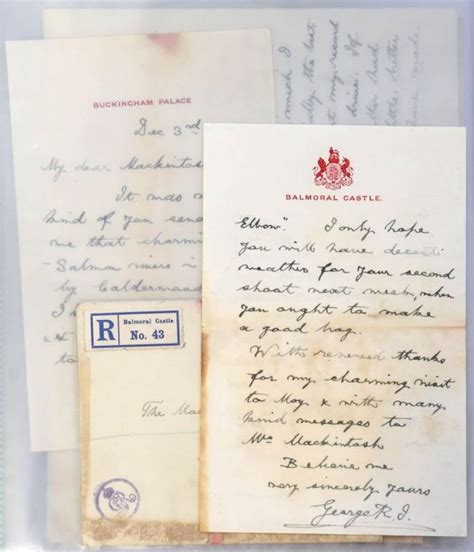 BUCKINGHAM PALACE
Dec 3rd
My dear Mackintosh
It was
kind of you send
me that charming
Salmon rivers
by Calderwood
I
to
which I
ally the last
to my record
drive. If
had
little better
made
R Balmoral Castle
No. 43
The Mac
BALMORAL CASTLE.
Elbow". I only hope
you will have decent
weather for your second
shoot next week, when
you ought to make
a good bag.
With renewed thanks
for my charming visit
to Moy & with many
kind messages to
Mrs Mackintosh
Believe me
very sincerely yours
George R.I.